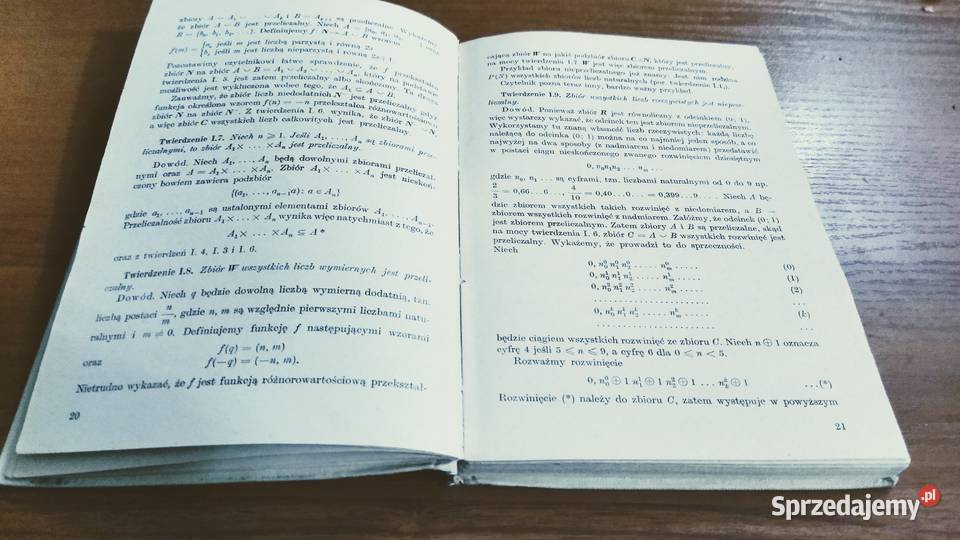 zbiory A ∪ A₁ ∪ . . . ∪ Aₖ i B = Aₖ₊₁ są przeliczalne. Wykażemy,
że zbiór A ∪ B jest przeliczalny. Niech A =
B = {b₀, b₁, b₂, . . .}. Definiujemy f: N → A ∪ B wzorem
f(m) = { aₛ jeśli m jest liczbą parzystą i równą 2s
bₛ jeśli m jest liczbą nieparzystą i równą 2s + 1
Pozostawimy czytelnikowi łatwe sprawdzenie, że f przekształca
zbiór N na zbiór A ∪ B = A₁ ∪ A₂ ∪ . . . ∪ Aₙ, który na podstawie
twierdzenia I. 3. jest zatem przeliczalny albo skończony. Ta druga
możliwość jest wykluczona wobec tego, że A₁ ⊆ A ∪ B.
Zauważmy, że zbiór liczb niedodatnich N⁻ jest przeliczalny, gdyż
funkcja określona wzorem f(n) = −n przekształca różnowartościowo
zbiór N na zbiór N⁻. Z twierdzenia I. 6. wynika, że zbiór N ∪ N⁻,
a więc zbiór C wszystkich liczb całkowitych jest przeliczalny.
Twierdzenie I.7. Niech n ⩾ 1. Jeśli A₁, . . . , Aₙ są zbiorami prze-
liczalnymi, to zbiór A₁ × . . . × Aₙ jest przeliczalny.
Dowód. Niech A₁, . . . , Aₙ będą dowolnymi zbiorami przeliczal-
nymi oraz A = A₁ × . . . × Aₙ. Zbiór A₁ × . . . × Aₙ jest nieskoń-
czony bowiem zawiera podzbiór
{(a₁, . . . , aₙ₋₁, a): a ∈ Aₙ}
gdzie a₁, . . . , aₙ₋₁ są ustalonymi elementami zbiorów A₁, . . . , Aₙ₋₁.
Przeliczalność zbioru A₁ × . . . × Aₙ wynika więc natychmiast z tego, że
A₁ × . . . × Aₙ ⊆ A*
oraz z twierdzeń I. 4, I. 3 i I. 6.
Twierdzenie I.8. Zbiór W wszystkich liczb wymiernych jest przeli-
czalny.
Dowód. Niech q będzie dowolną liczbą wymierną dodatnią, tzn.
liczbą postaci n/m, gdzie n, m są względnie pierwszymi liczbami natu-
ralnymi i m ≠ 0. Definiujemy funkcję f następującymi wzorami
f(q) = (n, m)
oraz f(−q) = (−n, m).
Nietrudno wykazać, że f jest funkcją różnorowartościową przekształ-
20
cającą zbiór W na jakiś podzbiór zbioru C × N, który jest przeliczalny,
na mocy twierdzenia I.7 W jest więc zbiorem przeliczalnym.
Przykład zbioru nieprzeliczalnego już znamy. Jest nim rodzina
P(N) wszystkich zbiorów liczb naturalnych (por. twierdzenie I.1.).
Czytelnik pozna teraz inny, bardzo ważny przykład.
Twierdzenie I.9. Zbiór wszystkich liczb rzeczywistych jest nieprze-
liczalny.
Dowód. Ponieważ zbiór R jest równoliczny z odcinkiem (0; 1),
więc wystarczy wykazać, że odcinek ten jest zbiorem nieprzeliczalnym.
Wykorzystamy tu znaną własność liczb rzeczywistych: każdą liczbę
należącą do odcinka (0; 1) można na co najmniej jeden sposób, a co
najwyżej na dwa sposoby (z nadmiarem i niedomiarem) przedstawić
w postaci ciągu nieskończonego zwanego rozwinięciem dziesiętnym
0, n₀n₁n₂ . . . nₘ . . .
gdzie n₀, n₁ . . . są cyframi, tzn. liczbami naturalnymi od 0 do 9 np.
2/3 = 0,66 . . . 6 . . . , 4/10 = 0,40 . . . 0 . . . = 0,399 . . . 9 . . . Niech A bę-
dzie zbiorem wszystkich takich rozwinięć z niedomiarem, a B —
zbiorem wszystkich rozwinięć z nadmiarem. Załóżmy, że odcinek (0; 1)
jest zbiorem przeliczalnym. Zatem zbiory A i B są przeliczalne, skąd
na mocy twierdzenia I. 6. zbiór C = A ∪ B wszystkich rozwinięć jest
przeliczalny. Wykażemy, że prowadzi to do sprzeczności.
Niech
0, n₀⁰ n₁⁰ n₂⁰ . . . . . nₘ⁰ . . . . . (0)
0, n₀¹ n₁¹ n₂¹ . . . . . nₘ¹ . . . . . (1)
0, n₀² n₁² n₂² . . . . . nₘ² . . . . . (2)
. . . . . . . . . . . . . . . . . . . . . . . . . . .
0, n₀ᵏ n₁ᵏ n₂ᵏ . . . . . nₘᵏ . . . . . (k)
. . . . . . . . . . . . . . . . . . . . . . . . . . .
będzie ciągiem wszystkich rozwinięć ze zbioru C. Niech n ⊕ 1 oznacza
cyfrę 4 jeśli 5 ⩽ n ⩽ 9, a cyfrę 6 dla 0 ⩽ n < 5.
Rozważmy rozwinięcie
0, n₀⁰ ⊕ 1 n₁¹ ⊕ 1 n₂² ⊕ 1 . . . nₖᵏ ⊕ 1 . . . (*)
Rozwinięcie (*) należy do zbioru C, zatem występuje w powyższym
21
Sprzedajemy.pl